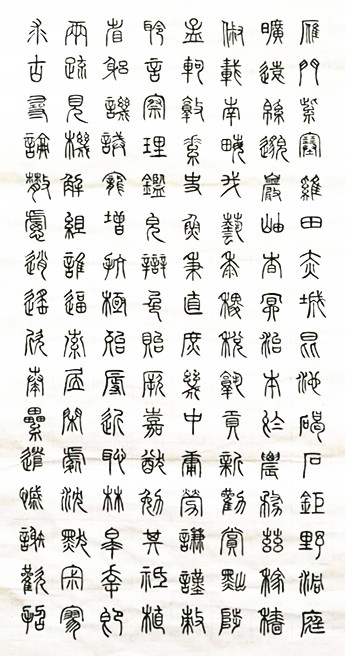 雁門紫塞雞田赤城昆池碣石鉅野洞庭
曠遠緜邈巖岫杳冥治本於農務茲稼穡
俶載南畝我藝黍稷稅孰貢新勸賞黜陟
孟軻敦素史魚秉直庶幾中庸勞謙謹敕
聆音察理鑑皃辯色貽厥嘉猷勉其祗植
省躬譏誡寵增抗極殆辱近恥林皋幸即
兩疏見機解組誰逼索居閑處沈默寂寥
求古尋論散慮逍遙欣奏纍遣慼謝歡招